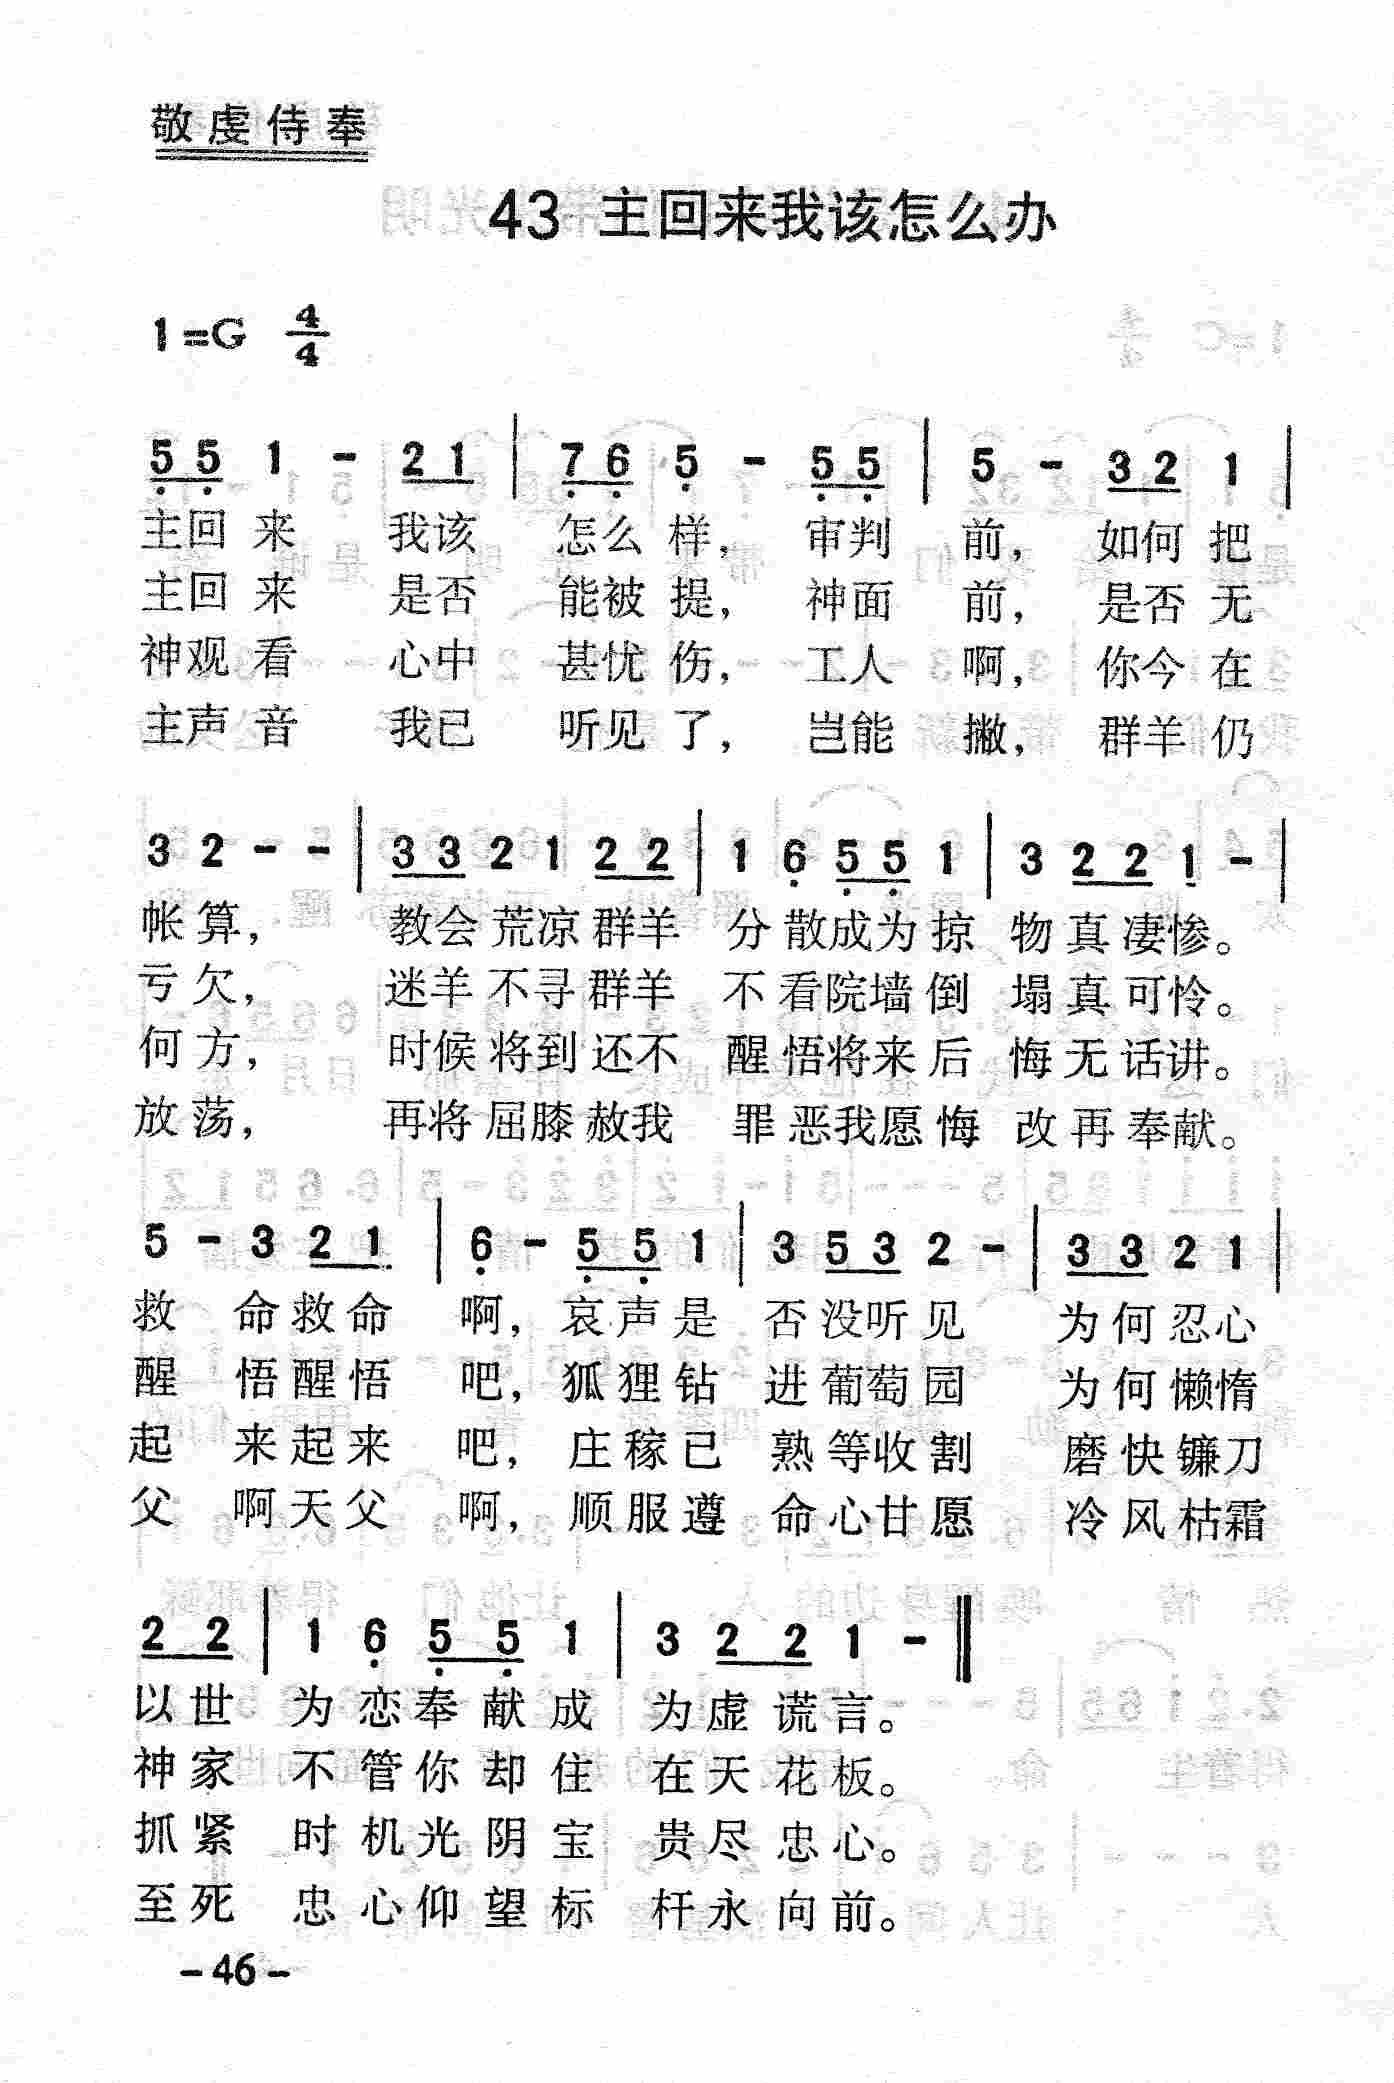 敬虔侍奉
43 主回来我该怎么办
1=G 4/4
5 5 1 - 2 1 | 7 6 5 - 5 5 | 5 - 3 2 1 |
主回来 我该 怎么样, 审判 前, 如何把
主回来 是否 能被提, 神面 前, 是否无
神观看 心中 甚忧伤, 工人 啊, 你今在
主声音 我已 听见了, 岂能 撇, 群羊仍
3 2 - - | 3 3 2 1 2 2 | 1 6 5 5 1 | 3 2 2 1 - |
帐算, 教会荒凉群羊 分散成为掠 物真凄惨。
亏欠, 迷羊不寻群羊 不看院墙倒 塌真可怜。
何方, 时候将到还不 醒悟将来后 悔无话讲。
放荡, 再将屈膝赦我 罪恶我愿悔 改再奉献。
5 - 3 2 1 | 6 - 5 5 1 | 3 5 3 2 - | 3 3 2 1 |
救 命救命 啊, 哀声是 否没听见 为何忍心
醒 悟醒悟 吧, 狐狸钻 进葡萄园 为何懒惰
起 来起来 吧, 庄稼已 熟等收割 磨快镰刀
父 啊天父 啊, 顺服遵 命心甘愿 冷风枯霜
2 2 | 1 6 5 5 1 | 3 2 2 1 - ‖
以世 为恋奉献成 为虚谎言。
神家 不管你却住 在天花板。
抓紧 时机光阴宝 贵尽忠心。
至死 忠心仰望标 杆永向前。
-46-